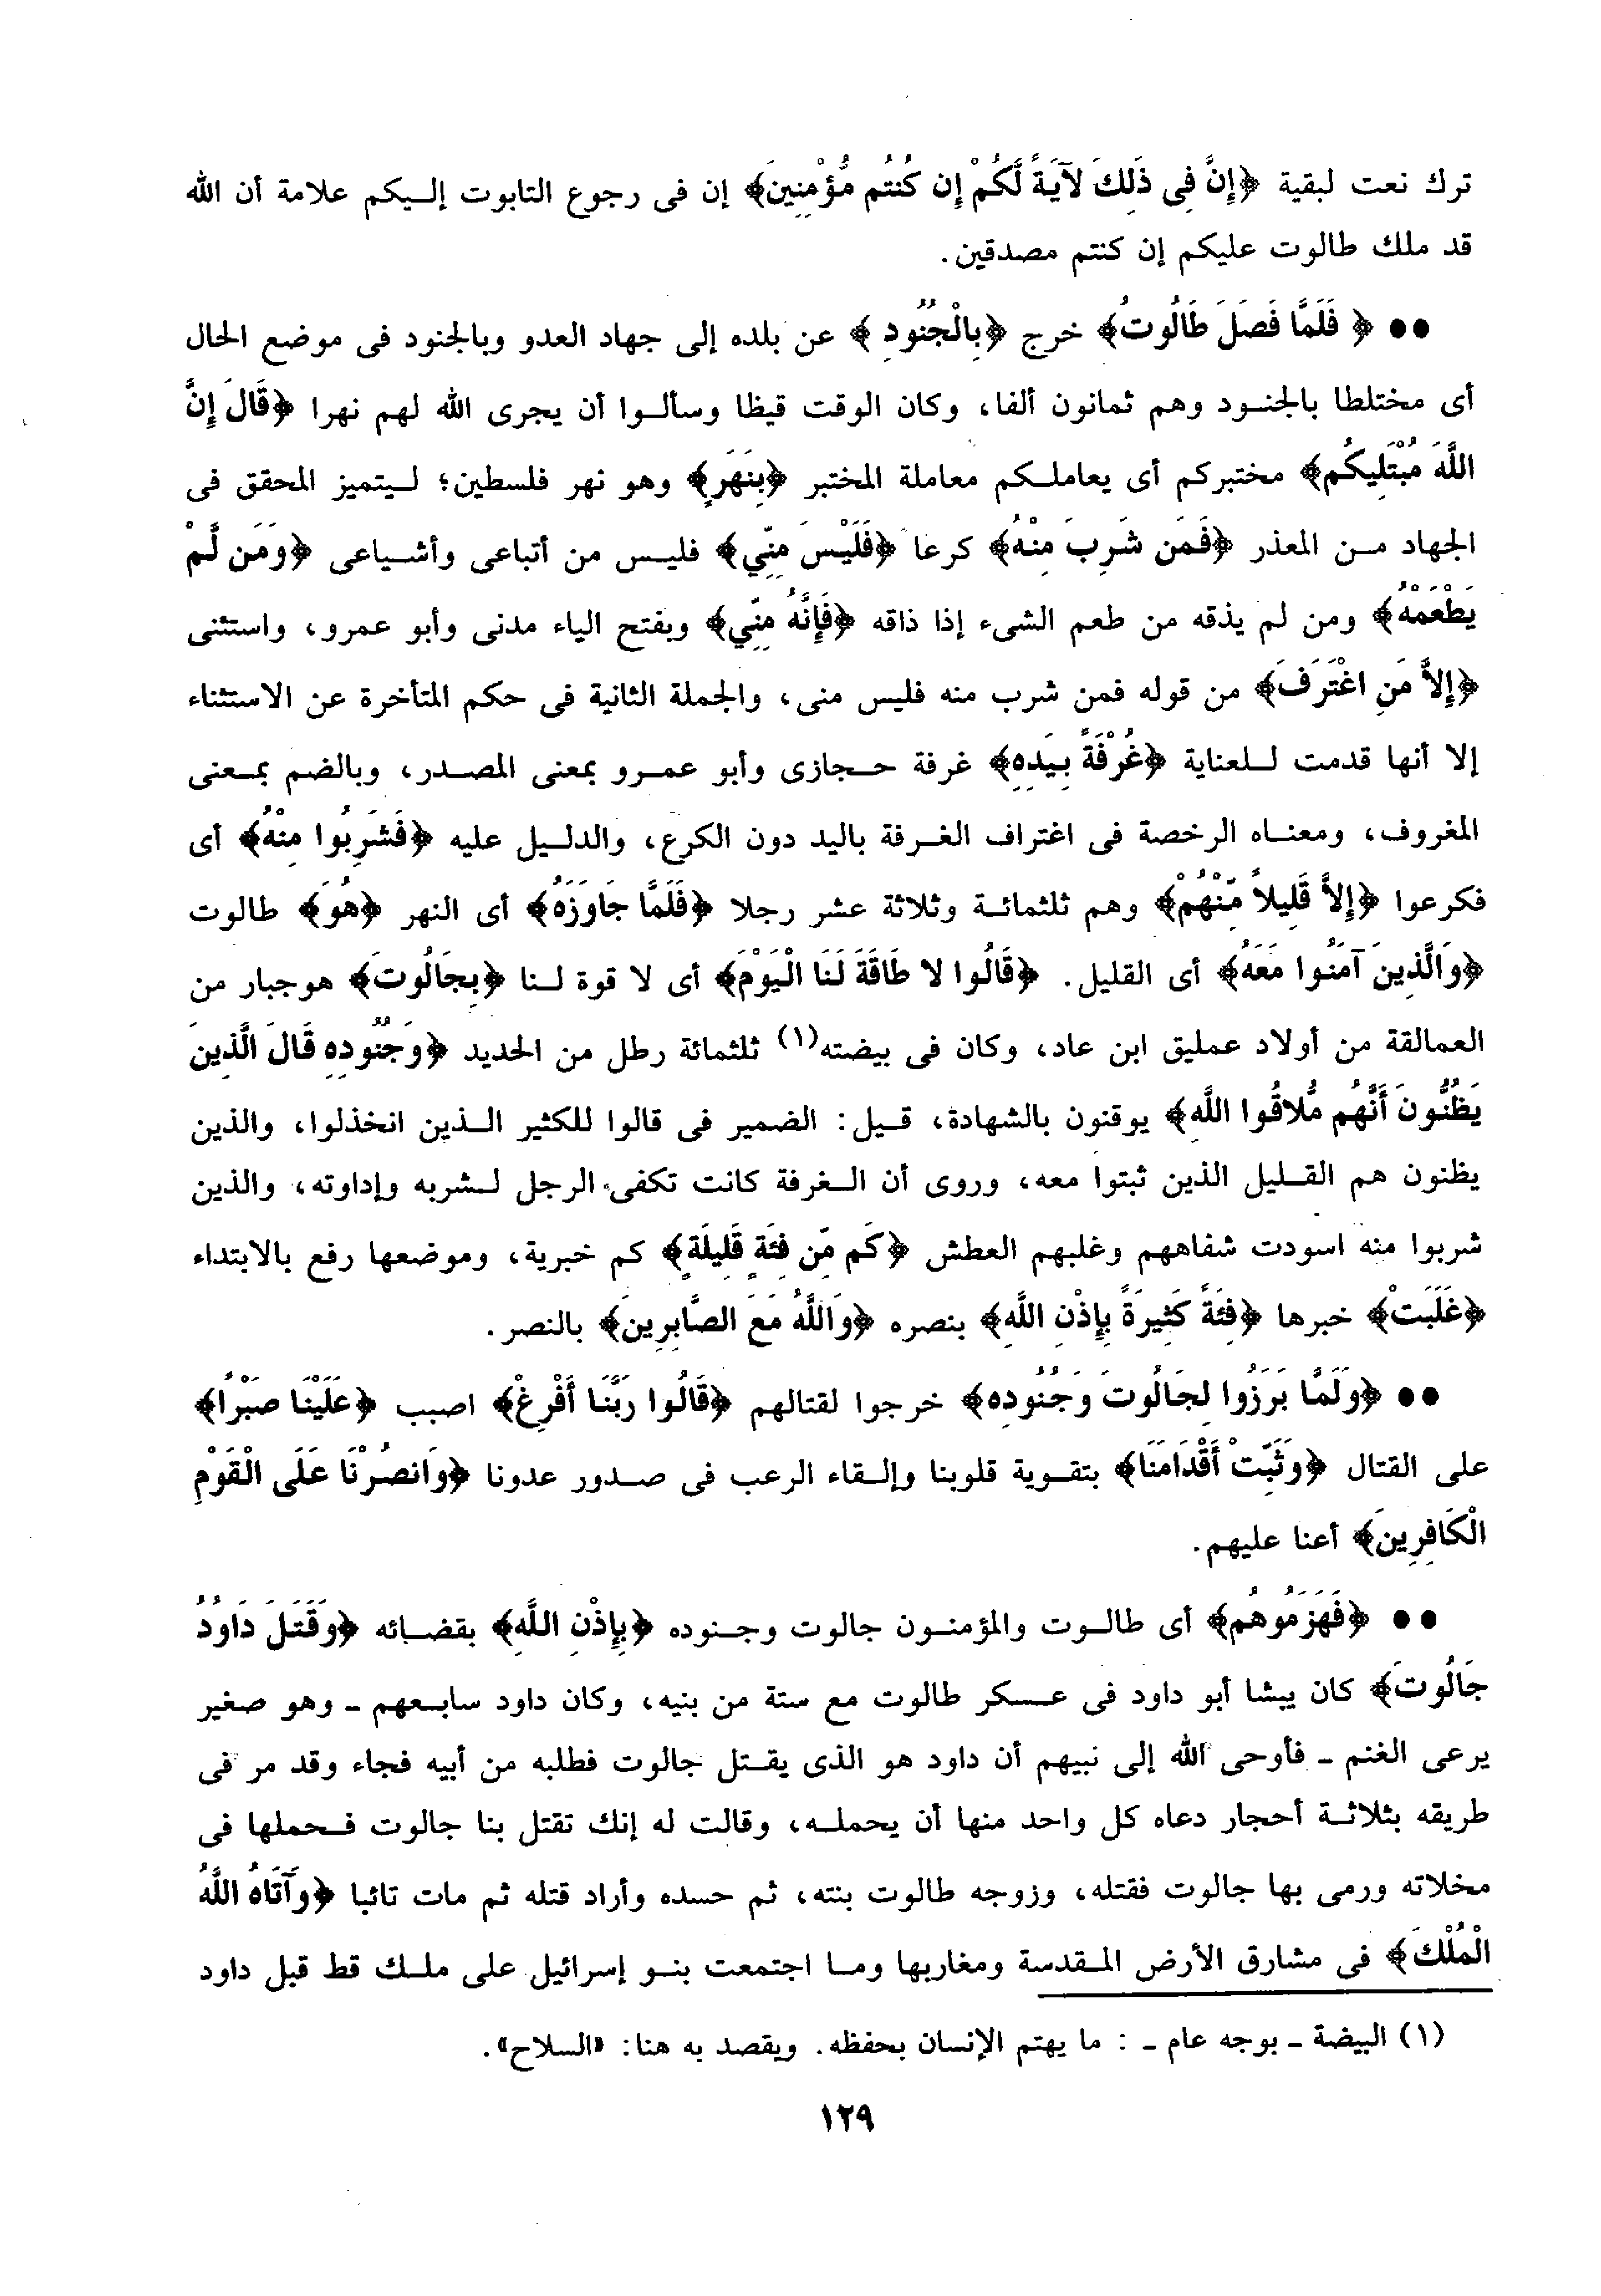 ترك نعت لبقية ﴿إِنَّ فِى ذَلِكَ لآيَةً لَّكُمْ إِن كُنتُم مُّؤْمِنِينَ﴾ إن فى رجوع التابوت إليكم علامة أن الله
قد ملك طالوت عليكم إن كنتم مصدقين.
●● ﴿ فَلَمَّا فَصَلَ طَالُوتُ﴾ خرج ﴿بِالْجُنُودِ ﴾ عن بلده إلى جهاد العدو وبالجنود فى موضع الحال
أى مختلطا بالجنود وهم ثمانون ألفا، وكان الوقت قيظا وسألوا أن يجرى الله لهم نهرا ﴿قَالَ إِنَّ
اللَّهَ مُبْتَلِيكُم﴾ مختبركم أى يعاملكم معاملة المختبر ﴿بِنَهَرٍ﴾ وهو نهر فلسطين؛ ليتميز المحقق فى
الجهاد من المعذر ﴿فَمَن شَرِبَ مِنْهُ﴾ كرعا ﴿فَلَيْسَ مِنِّي﴾ فليس من أتباعى وأشياعى ﴿وَمَن لَّمْ
يَطْعَمْهُ﴾ ومن لم يذقه من طعم الشىء إذا ذاقه ﴿فَإِنَّهُ مِنِّي﴾ وبفتح الياء مدنى وأبو عمرو، واستثنى
﴿إِلاَّ مَنِ اغْتَرَفَ﴾ من قوله فمن شرب منه فليس منى، والجملة الثانية فى حكم المتأخرة عن الاستثناء
إلا أنها قدمت للعناية ﴿غُرْفَةً بِيَدِهِ﴾ غرفة حجازى وأبو عمرو بمعنى المصدر، وبالضم بمعنى
المغروف، ومعناه الرخصة فى اغتراف الغرفة باليد دون الكرع، والدليل عليه ﴿فَشَرِبُوا مِنْهُ﴾ أى
فكرعوا ﴿إِلاَّ قَلِيلاً مِّنْهُمْ﴾ وهم ثلثمائة وثلاثة عشر رجلا ﴿فَلَمَّا جَاوَزَهُ﴾ أى النهر ﴿هُوَ﴾ طالوت
﴿وَالَّذِينَ آمَنُوا مَعَهُ﴾ أى القليل. ﴿قَالُوا لا طَاقَةَ لَنَا الْيَوْمَ﴾ أى لا قوة لنا ﴿بِجَالُوتَ﴾ هوجبار من
العمالقة من أولاد عمليق ابن عاد، وكان فى بيضته(١) ثلثمائة رطل من الحديد ﴿وَجُنُودِهِ قَالَ الَّذِينَ
يَظُنُّونَ أَنَّهُم مُّلاقُوا اللَّهِ﴾ يوقنون بالشهادة، قيل: الضمير فى قالوا للكثير الذين انخذلوا، والذين
يظنون هم القليل الذين ثبتوا معه، وروى أن الغرفة كانت تكفى الرجل لشربه وإداوته، والذين
شربوا منه اسودت شفاههم وغلبهم العطش ﴿كَم مِّن فِئَةٍ قَلِيلَةٍ﴾ كم خبرية، وموضعها رفع بالابتداء
﴿غَلَبَتْ﴾ خبرها ﴿فِئَةً كَثِيرَةً بِإِذْنِ اللَّهِ﴾ بنصره ﴿وَاللَّهُ مَعَ الصَّابِرِينَ﴾ بالنصر.
●● ﴿وَلَمَّا بَرَزُوا لِجَالُوتَ وَجُنُودِهِ﴾ خرجوا لقتالهم ﴿قَالُوا رَبَّنَا أَفْرِغْ﴾ اصبب ﴿عَلَيْنَا صَبْرًا﴾
على القتال ﴿وَثَبِّتْ أَقْدَامَنَا﴾ بتقوية قلوبنا وإلقاء الرعب فى صدور عدونا ﴿وَانصُرْنَا عَلَى الْقَوْمِ
الْكَافِرِينَ﴾ أعنا عليهم.
●● ﴿فَهَزَمُوهُم﴾ أى طالوت والمؤمنون جالوت وجنوده ﴿بِإِذْنِ اللَّهِ﴾ بقضائه ﴿وَقَتَلَ دَاوُدُ
جَالُوتَ﴾ كان يبشا أبو داود فى عسكر طالوت مع ستة من بنيه، وكان داود سابعهم ـ وهو صغير
يرعى الغنم ـ فأوحى الله إلى نبيهم أن داود هو الذى يقتل جالوت فطلبه من أبيه فجاء وقد مر فى
طريقه بثلاثة أحجار دعاه كل واحد منها أن يحمله، وقالت له إنك تقتل بنا جالوت فحملها فى
مخلاته ورمى بها جالوت فقتله، وزوجه طالوت بنته، ثم حسده وأراد قتله ثم مات تائبا ﴿وَآتَاهُ اللَّهُ
الْمُلْكَ﴾ فى مشارق الأرض المقدسة ومغاربها وما اجتمعت بنو إسرائيل على ملك قط قبل داود
(١) البيضة ـ بوجه عام ـ : ما يهتم الإنسان بحفظه. ويقصد به هنا: «السلاح».
١٢٩